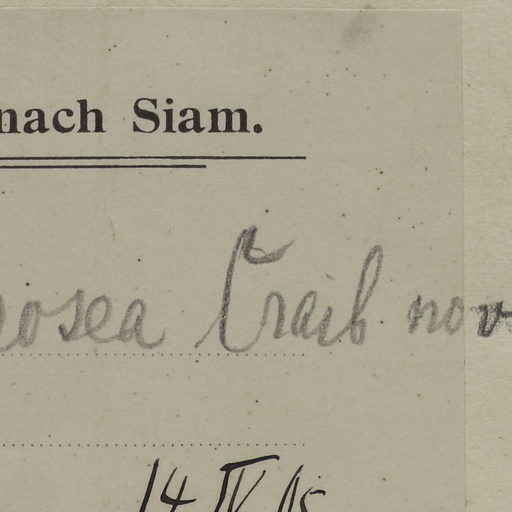 nach Siam.
osea Craib nov
14 IV 05